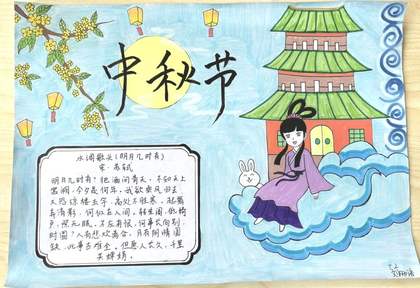 中秋节
水调歌头(明月几时有)
宋·苏轼
明月几时有?把酒问青天,不知天上
宫阙,今夕是何年,我欲乘风归去
又恐琼楼玉宇,高处不胜寒,起舞
弄清影,何似在人间,转朱阁,低绮户
照无眠,不应有恨,何事长向别
时圆?人有悲欢离合,月有阴晴圆
缺,此事古难全,但愿人长久,千里
共婵娟。